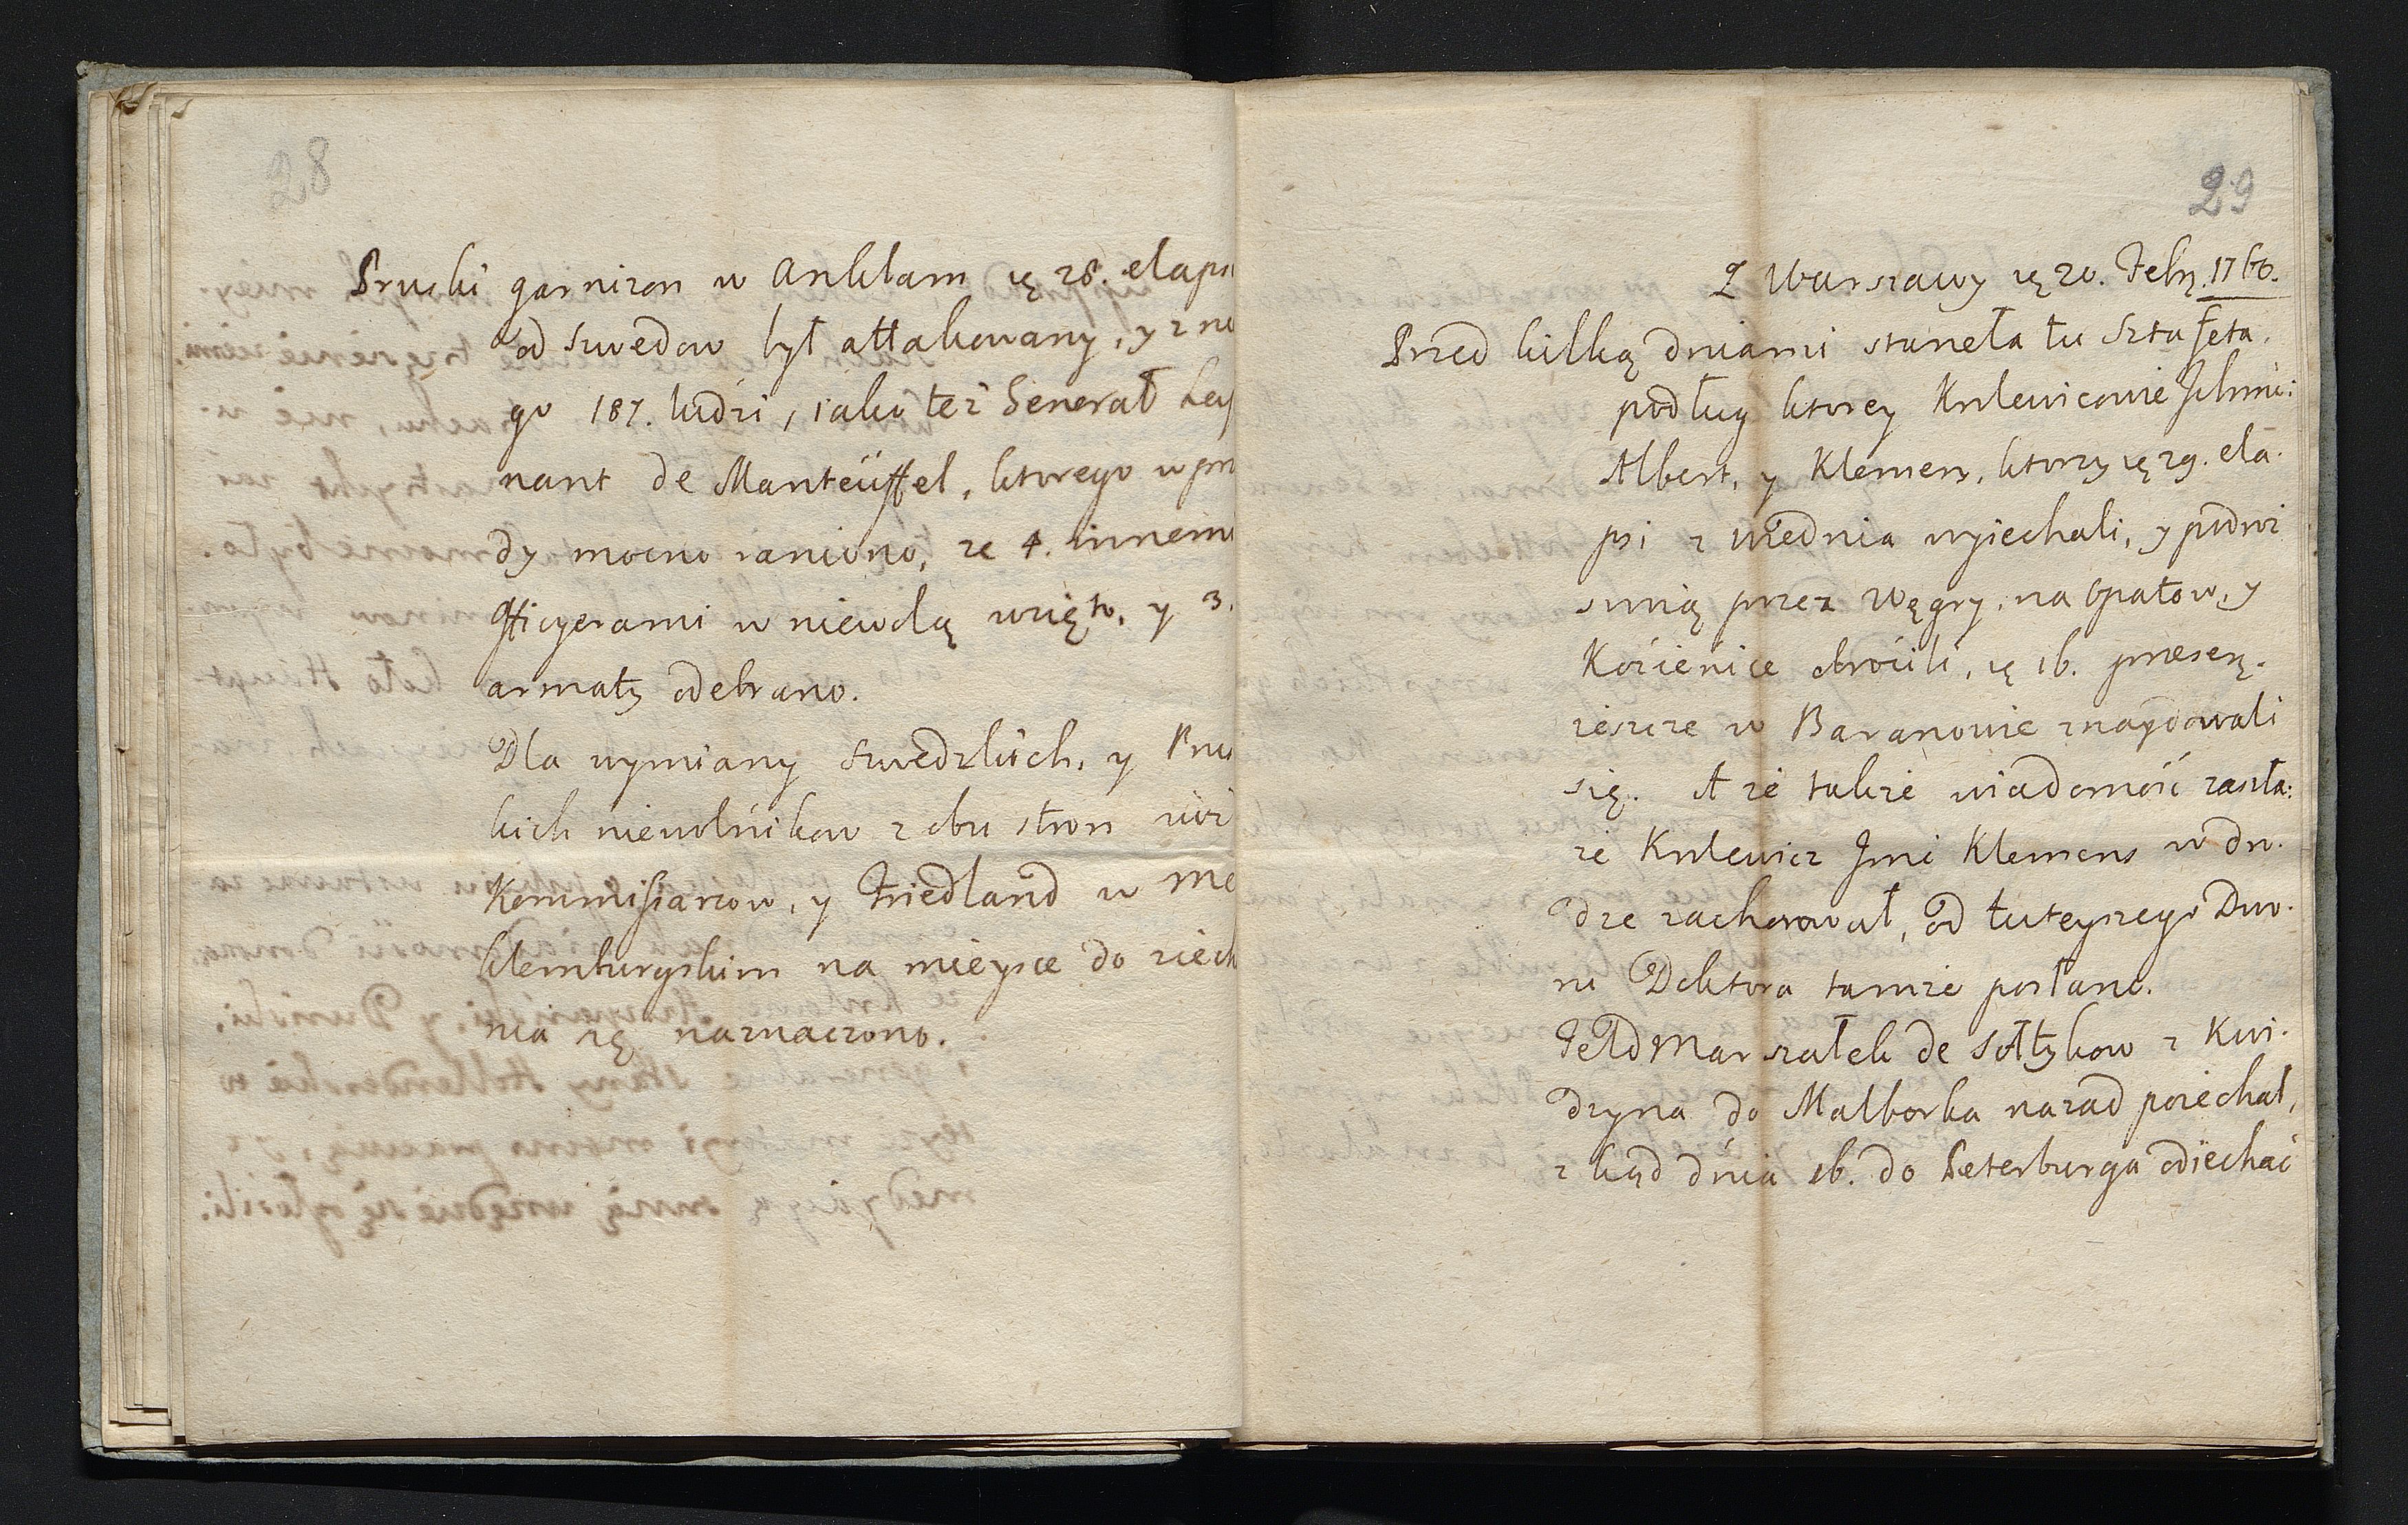 28
Pruski garnizon w Anklam ię 28. elaps
od Szwedow był attakowany, y z nie
go 187. ludzi, iako też Generał Ley
nant de Manteüffel, ktorego wprzo
dy mocno raniono, ze 4. innemi
Officyerami w niewolą wzięto, y 3.
armaty odebrano.
Dla wymiany Szwedzkich, y Prus
kich niewolńikow z obu stron
Kommissarzow, y Friedland w Me
klemburgskim na mieysce do ziech
nia się naznaczono.
29
Z Warszawy ię 20. Febr. 1760.
Przed kilką dniami staneła tu Sztafeta,
podług ktorey Krolewicowie Jchmć:
Albert, y Klemens, ktorzy ię 29. ela-
psi z Wiednia wyiechali, y podroż
swoią przez Węgry, na Opatow, y
Koźienice obroćili, ię 16. praesen.
ieszcze w Baranowie znaydowali
się. A że także wiadomość zaszła:
że Krolewicz Jmć Klemens w dro-
dze zachorował, od tuteyszego Dwo-
ru Doktora tamże posłano.
Feldmarszałek de Sołtykow z Kwi-
dzyna do Malborka nazad poiechał,
z kąd dńia 16. do Peterburga odiechać